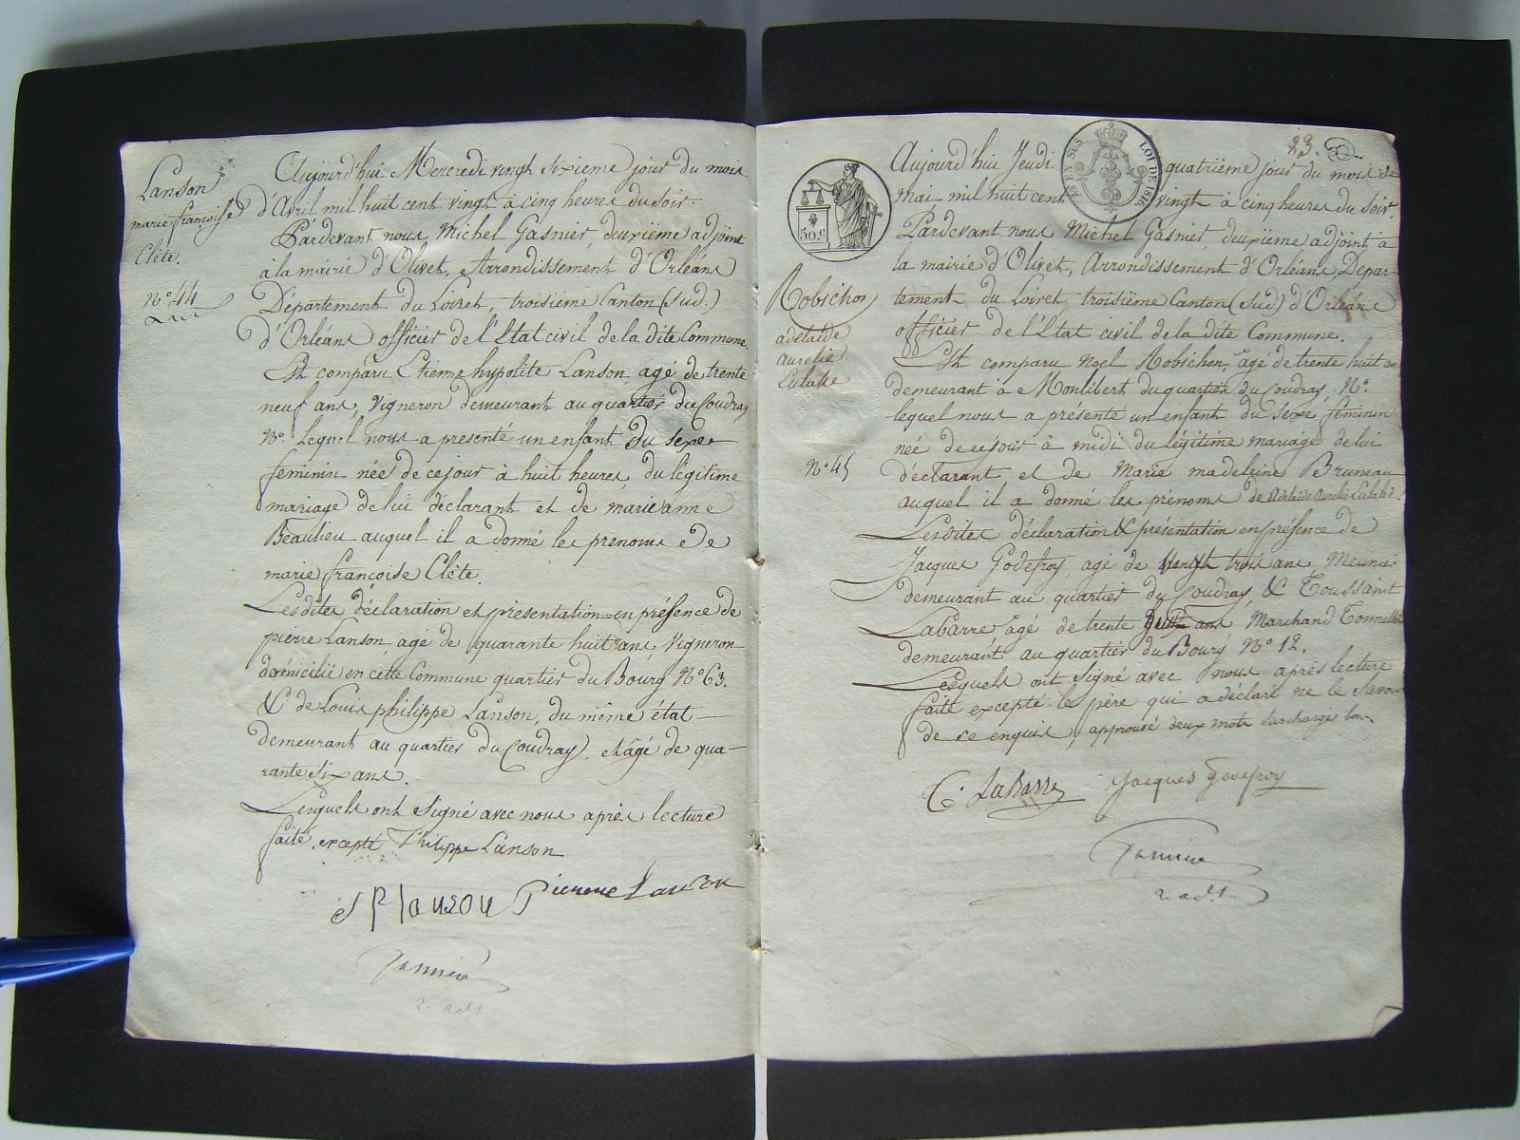 Lanson
marie françoise
Clête.
N° 44
Aujourd'hui Mercredi vingt sixieme jour du mois
d'Avril mil huit cent vingt à cinq heures du soir.
Pardevant nous, Michel Gasnier, deuxième adjoint
à la mairie d'Olivet, Arrondissement d'Orléans
Département du Loiret troisieme Canton (Sud.)
d'Orléans officier de l'Etat civil de la dite Commune.
Est comparu Etienne hypolite Lanson, agé de trente
neuf ans, Vigneron demeurant au quartier du Coudray
N°. Lequel nous a presenté un enfant du sexe
feminin née de ce jour à huit heures, du légitime
mariage de lui déclarant et de marie anne
Beaulieu auquel il a donné les prenoms de
marie françoise Clête.
Lesdites déclaration et présentation en présence de
pierre Lanson agé de quarante huit ans, Vigneron
domicilié en cette Commune quartier du Bourg N° 63.
& de Louis philippe Lanson, du même état
demeurant au quartier du Coudray. et agé de qua-
rante six ans.
Lesquels ont signé avec nous après lecture
faite. excepté Philippe Lanson
Lanson Pierre Lanson
2. adt
23.
50 c
LOI DE 1816
Robichon
adelaïde
aurelie
Eulalie
N° 45
Aujourd'hui Jeudi quatrième jour du mois de
mai mil huit cent vingt à cinq heures du soir.
Pardevant nous Michel Gasnier, deuxieme adjoint à
la mairie d'Olivet, Arrondissement d'Orléans Depar-
tement du Loiret troisième Canton (Sud) d'Orléans
officier de l'Etat civil de la dite Commune.
Est comparu Noel Robichon, agé de trente huit ans
demeurant à Monlibert du quartier du Coudray, N°.
lequel nous a presenté un enfant du Sexe féminin
née de ce jour à midi du légitime mariage de lui
déclarant et de Marie madeleine Bruneau
auquel il a donné les prenoms de Adelaïde Aurelie Eulalie.
Lesdites déclaration & présentation en présence de
Jacques Godefroy, agé de vingt trois ans, Meunier
demeurant au quartier du Coudray, & Toussaint
Labarre agé de trente ans Marchand Tonnellier
demeurant au quartier du Bourg N° 12.
Lesquels ont signé avec nous après lecture
faite excepté le père qui a déclaré ne le savoir
de ce enquis, approuvé deux mots surchargés
Labarre Jacques Godefroy
2. adt